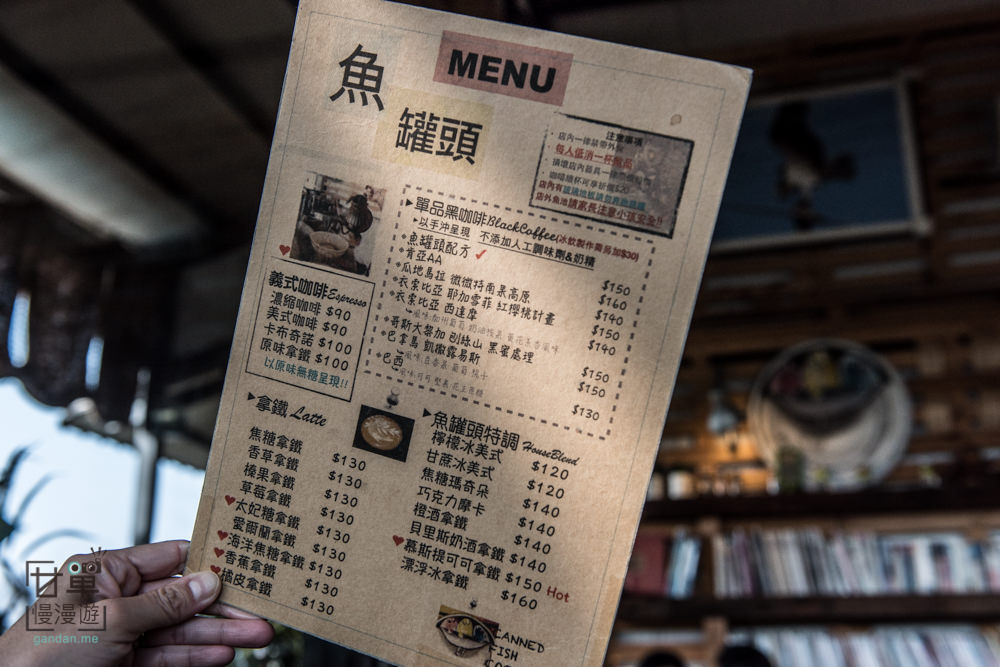 魚
罐頭
MENU
注意事項
每人低消一杯飲品
店外魚池請家長注意小孩安全!!
▶單品黑咖啡BlackCoffee(冰飲製作需另加$30)
▶以手沖呈現 不添加人工調味劑&奶精
魚罐頭配方 ✓ $150
肯亞AA $160
瓜地馬拉 微微特南果高原 $140
衣索比亞 耶加雪菲 紅櫻桃計畫 $150
衣索比亞 西達摩 $140
哥斯大黎加 刖綠山 黑蜜處理 $150
巴拿馬 凱撒露易斯 $150
巴西 $130
義式咖啡Espresso
濃縮咖啡 $90
美式咖啡 $90
卡布奇諾 $100
原味拿鐵 $100
以原味無糖呈現!!
▶拿鐵 Latte
焦糖拿鐵 $130
香草拿鐵 $130
榛果拿鐵 $130
草莓拿鐵 $130
♥太妃糖拿鐵 $130
愛爾蘭拿鐵 $130
♥海洋焦糖拿鐵 $130
♥香蕉拿鐵 $130
♥橘皮拿鐵 $130
▶魚罐頭特調 HouseBlend
檸檬冰美式 $120
甘蔗冰美式 $120
焦糖瑪奇朵 $140
巧克力摩卡 $140
橙酒拿鐵 $140
貝里斯奶酒拿鐵 $140
♥慕斯提可可拿鐵 $150 Hot
漂浮冰拿鐵 $160
CANNED
FISH
甘單
慢漫遊
gandan.me